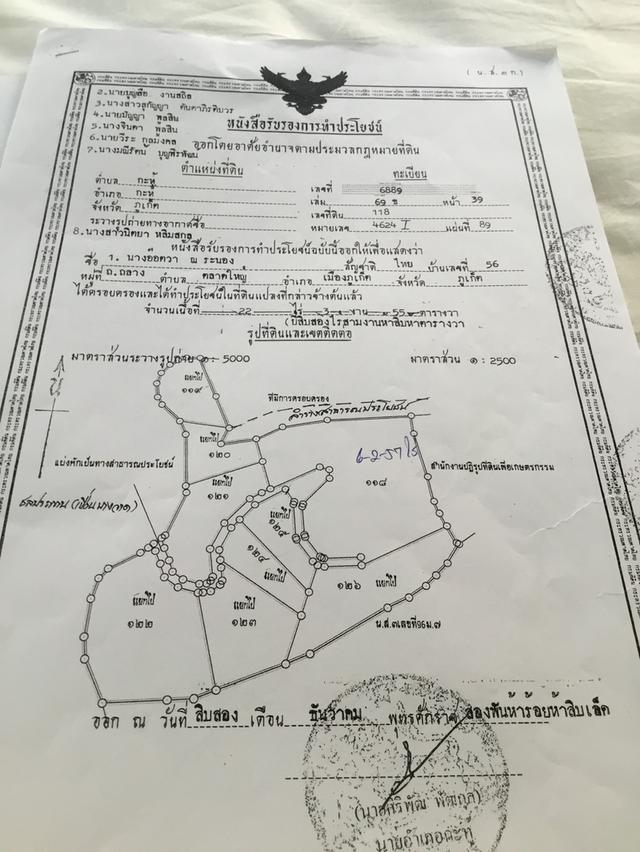 (น.ส.๓ก.)
2.นายบุญสืบ งานสถิล
3.นางสาวสุกัญญา
4.นายปัญญา พูลสิน
5.นางจินดา พูลสิน
6.นายวีระ กอมงคล
7.นางมณีรัตน์
หนังสือรับรองการทำประโยชน์
ออกโดยอาศัยอำนาจตามประมวลกฎหมายที่ดิน
ตำแหน่งที่ดิน
ทะเบียน
ตำบล กะทู้
เลขที่ 6889
อำเภอ กะทู้
เล่ม 69 ข หน้า 39
จังหวัด ภูเก็ต
เลขที่ดิน 118
ระวางรูปถ่ายทางอากาศชื่อ
หมายเลข 4624 I แผ่นที่ 89
8.นางสาวนิตยา หลิมสกุล
หนังสือรับรองการทำประโยชน์ฉบับนี้ออกให้เพื่อแสดงว่า
ชื่อ 1. นางอ๊อดวา ณ ระนอง สัญชาติ ไทย บ้านเลขที่ 56
หมู่ที่ ถ.ถลาง ตำบล ตลาดใหญ่ อำเภอ เมืองภูเก็ต จังหวัด ภูเก็ต
ได้ครอบครองและได้ทำประโยชน์ในที่ดินแปลงที่กล่าวข้างต้นแล้ว
จำนวนเนื้อที่ 22 ไร่ 3 งาน 55 ตารางวา
(ยี่สิบสองไร่สามงานห้าสิบห้าตารางวา
รูปที่ดินและเขตติดต่อ
มาตราส่วนระวางรูปถ่าย ๑ : 5000
มาตราส่วน ๑ : 2500
แยกไป
๑๑๙
ที่มีการครอบครอง
ลำรางสาธารณประโยชน์
แยกไป
๑๒๐
6-2-57 ไร่
แบ่งหักเป็นทางสาธารณประโยชน์
แยกไป
๑๒๑
๑๑๘
สำนักงานปฏิรูปที่ดินเพื่อเกษตรกรรม
ชลประทาน (เขื่อนบางวาด)
แยกไป
๑๒๕
แยกไป
๑๒๔
แยกไป
๑๒๖
แยกไป
๑๒๒
แยกไป
๑๒๓
น.ส.๓เลขที่96ม.๗
ออก ณ วันที่ สิบสอง เดือน ธันวาคม พุทธศักราช สองพันห้าร้อยห้าสิบเอ็ด
นายอำเภอกะทู้